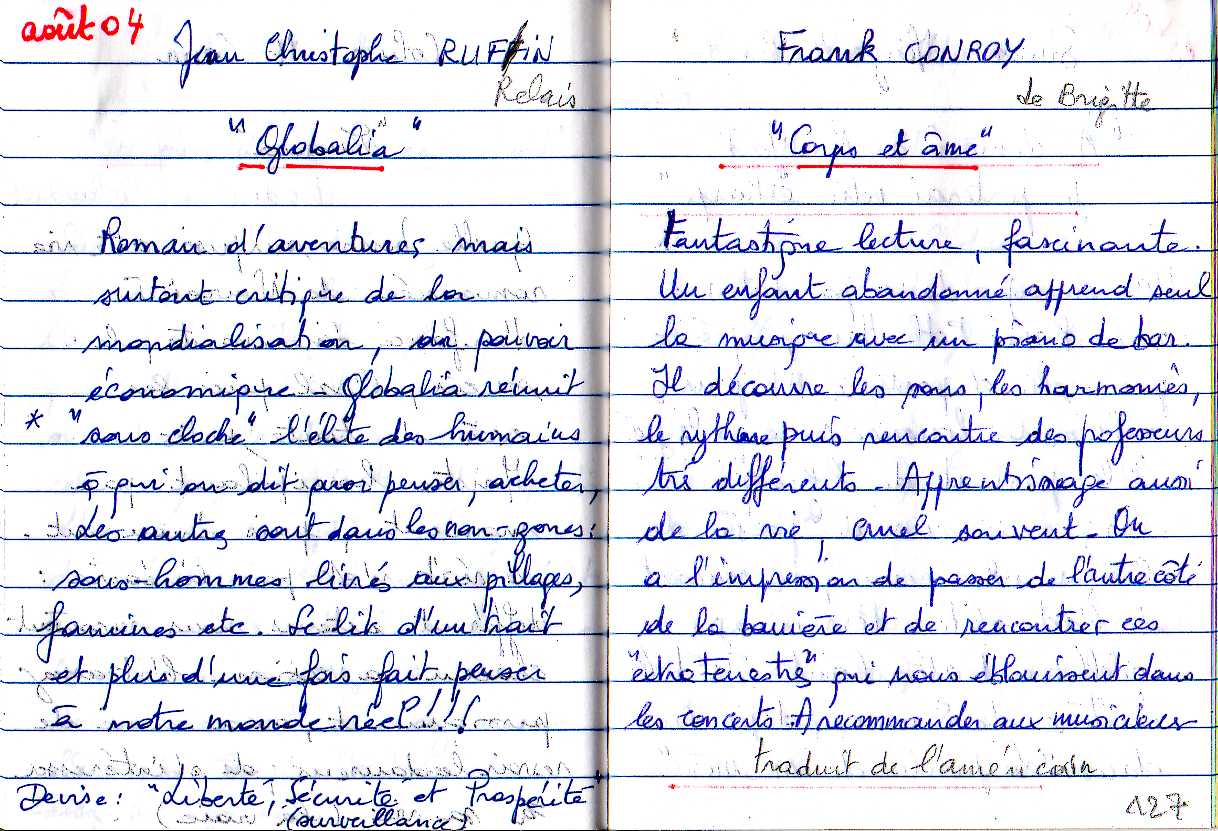 août 04
Jean Christophe RUFFIN
Relais
"Globalia"
Roman d'aventures, mais
surtout critique de la
mondialisation, du pouvoir
économique - Globalia réunit
* "sous cloche" l'élite des humains
à qui on dit quoi penser, acheter,
Les autres sont dans les non-zones:
sous-hommes livrés aux pillages,
famines etc. Se lit d'un trait
et plus d'une fois fait penser
à notre monde réel!!!
Devise: "Liberté, Sécurité et Prospérité
(surveillance)
Frank CONROY
de Brigitte
"Corps et âme"
Fantastique lecture, fascinante.
Un enfant abandonné apprend seul
la musique avec un piano de bar.
Il découvre les sons, les harmonies,
le rythme puis rencontre des professeurs
très différents - Apprentissage aussi
de la vie, cruel souvent - On
a l'impression de passer de l'autre côté
de la barrière et de rencontrer ces
"extraterrestres" qui nous éblouissent dans
les concerts. A recommander aux musiciens
traduit de l'américain
127